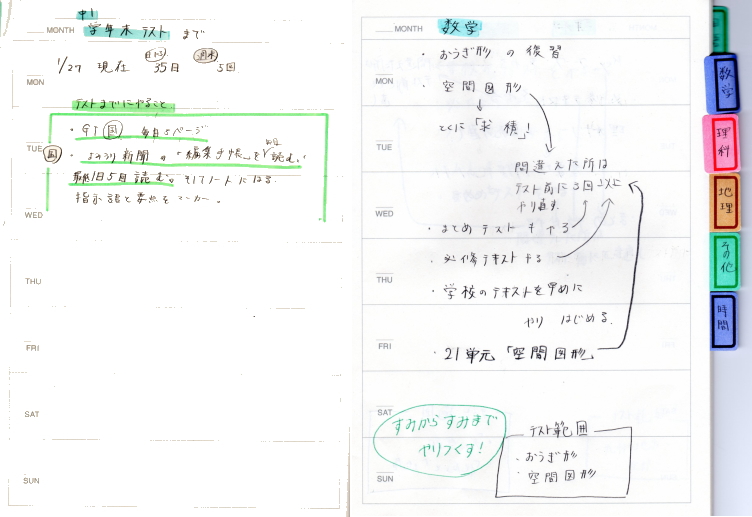 中1
MONTH 学年末テストまで
1/27 現在 35日 週末 5回
MON
テストまでにやること
・GT 国 毎日5ページ
TUE
国
・よみうり新聞の「編集手帳」を毎日読む。
最低1日5回読む。そしてノートにはる。
指示語と要点をマーカー。
WED
THU
FRI
SAT
SUN
MONTH 数学
・おうぎ形の復習
MON
・空間図形
とくに「求積」!
TUE
間違えた所は
テスト前に3回以上
やり直す
WED
・まとめテストもする
・必修テキストする
THU
・学校のテキストを早めに
やりはじめる。
FRI
・21単元「空間図形」
SAT
すみからすみまで
やりつくす!
テスト範囲
・おうぎ形
・空間図形
SUN
数学
理科
地理
その他
時間